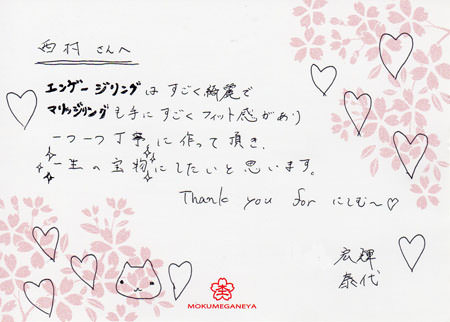 西村 さんへ
エンゲージリングは すごく綺麗で
マリッジリングも手にすごくフィット感があり
一つ一つ丁寧に作って頂き、
一生の宝物にしたいと思います。
Thank you for にしむ〜♡
宏輝
泰代
MOKUMEGANEYA